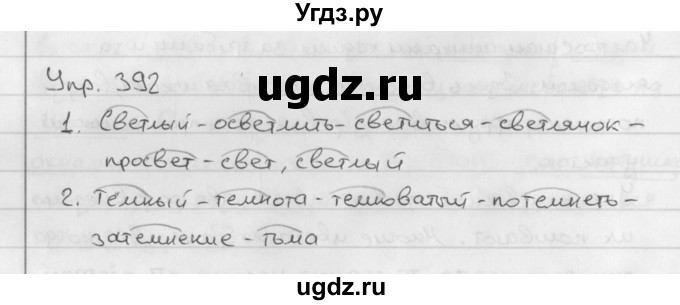 Угдз.ру
Упр. 392
ugdz.ru
1. Светлый - осветлить - светиться - светлячок -
просвет - свет, светлый
2. Темный - темнота - темноватый - потемнеть -
затемнение - тьма
ugdz.ru